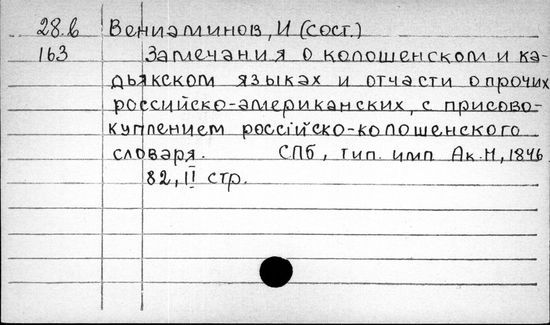 28.в Вениаминов, И (сост.)
163 Замечания о колошенском и ка-
дьякском языках и отчасти о прочих
российско-американских, с присово-
куплением россiйско-колошенского
словаря. СПб, тип. имп Ак. Н, 1846
82, II стр.